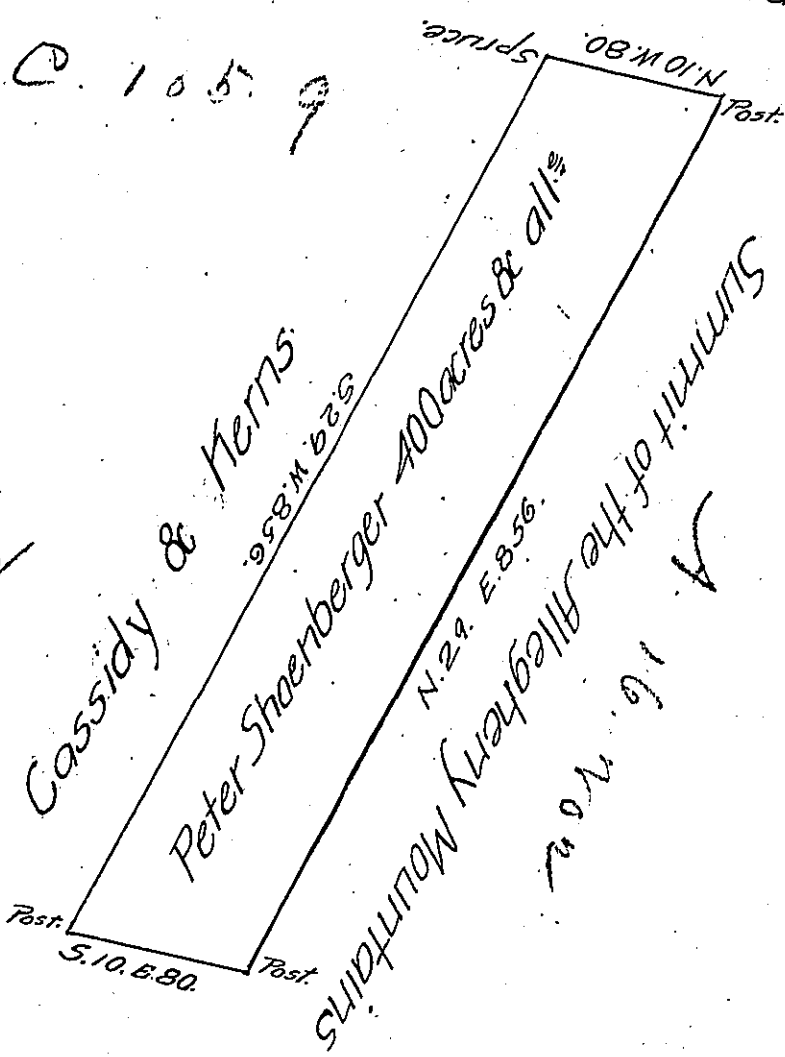 C. 105. 9
Spruce.
N.10.W.80.
Post.
Cassidy & Kerns.
S.29.W.856.
Peter Shoenberger 400 acres & all:
N.29. E.856.
Summit of the Allegheny Mountains
Post.
S.10.E.80.
Post.